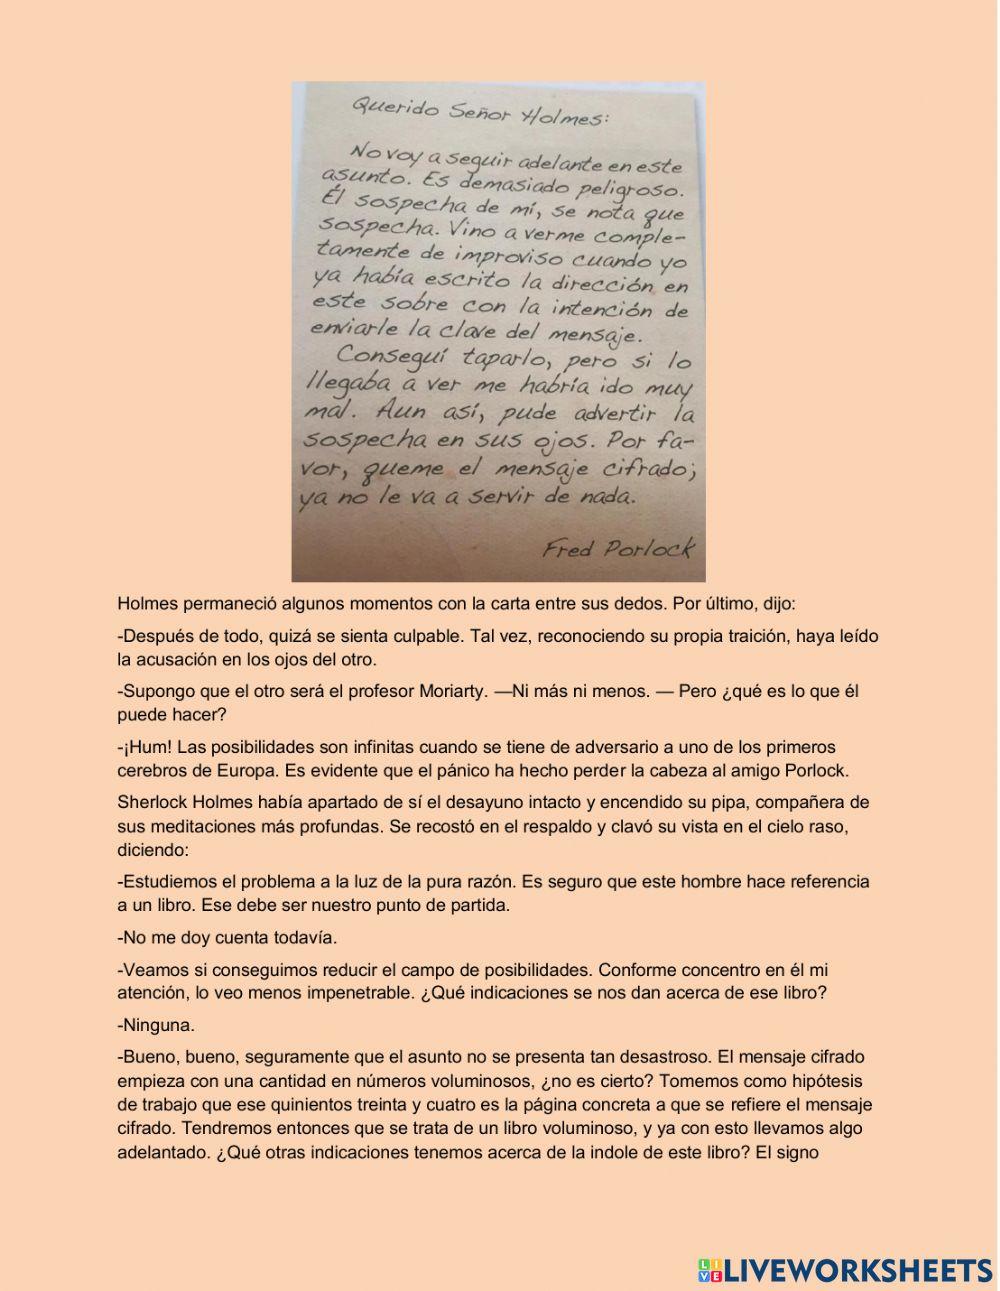 Querido Señor Holmes:
No voy a seguir adelante en este
asunto. Es demasiado peligroso.
Él sospecha de mí, se nota que
sospecha. Vino a verme comple-
tamente de improviso cuando yo
ya había escrito la dirección en
este sobre con la intención de
enviarle la clave del mensaje.
Conseguí taparlo, pero si lo
llegaba a ver me habría ido muy
mal. Aun así, pude advertir la
sospecha en sus ojos. Por fa-
vor, queme el mensaje cifrado;
ya no le va a servir de nada.
Fred Porlock
Holmes permaneció algunos momentos con la carta entre sus dedos. Por último, dijo:
-Después de todo, quizá se sienta culpable. Tal vez, reconociendo su propia traición, haya leído
la acusación en los ojos del otro.
-Supongo que el otro será el profesor Moriarty. —Ni más ni menos. — Pero ¿qué es lo que él
puede hacer?
-¡Hum! Las posibilidades son infinitas cuando se tiene de adversario a uno de los primeros
cerebros de Europa. Es evidente que el pánico ha hecho perder la cabeza al amigo Porlock.
Sherlock Holmes había apartado de sí el desayuno intacto y encendido su pipa, compañera de
sus meditaciones más profundas. Se recostó en el respaldo y clavó su vista en el cielo raso,
diciendo:
-Estudiemos el problema a la luz de la pura razón. Es seguro que este hombre hace referencia
a un libro. Ese debe ser nuestro punto de partida.
-No me doy cuenta todavía.
-Veamos si conseguimos reducir el campo de posibilidades. Conforme concentro en él mi
atención, lo veo menos impenetrable. ¿Qué indicaciones se nos dan acerca de ese libro?
-Ninguna.
-Bueno, bueno, seguramente que el asunto no se presenta tan desastroso. El mensaje cifrado
empieza con una cantidad en números voluminosos, ¿no es cierto? Tomemos como hipótesis
de trabajo que ese quinientos treinta y cuatro es la página concreta a que se refiere el mensaje
cifrado. Tendremos entonces que se trata de un libro voluminoso, y ya con esto llevamos algo
adelantado. ¿Qué otras indicaciones tenemos acerca de la indole de este libro? El signo
LIVE LIVEWORKSHEETS